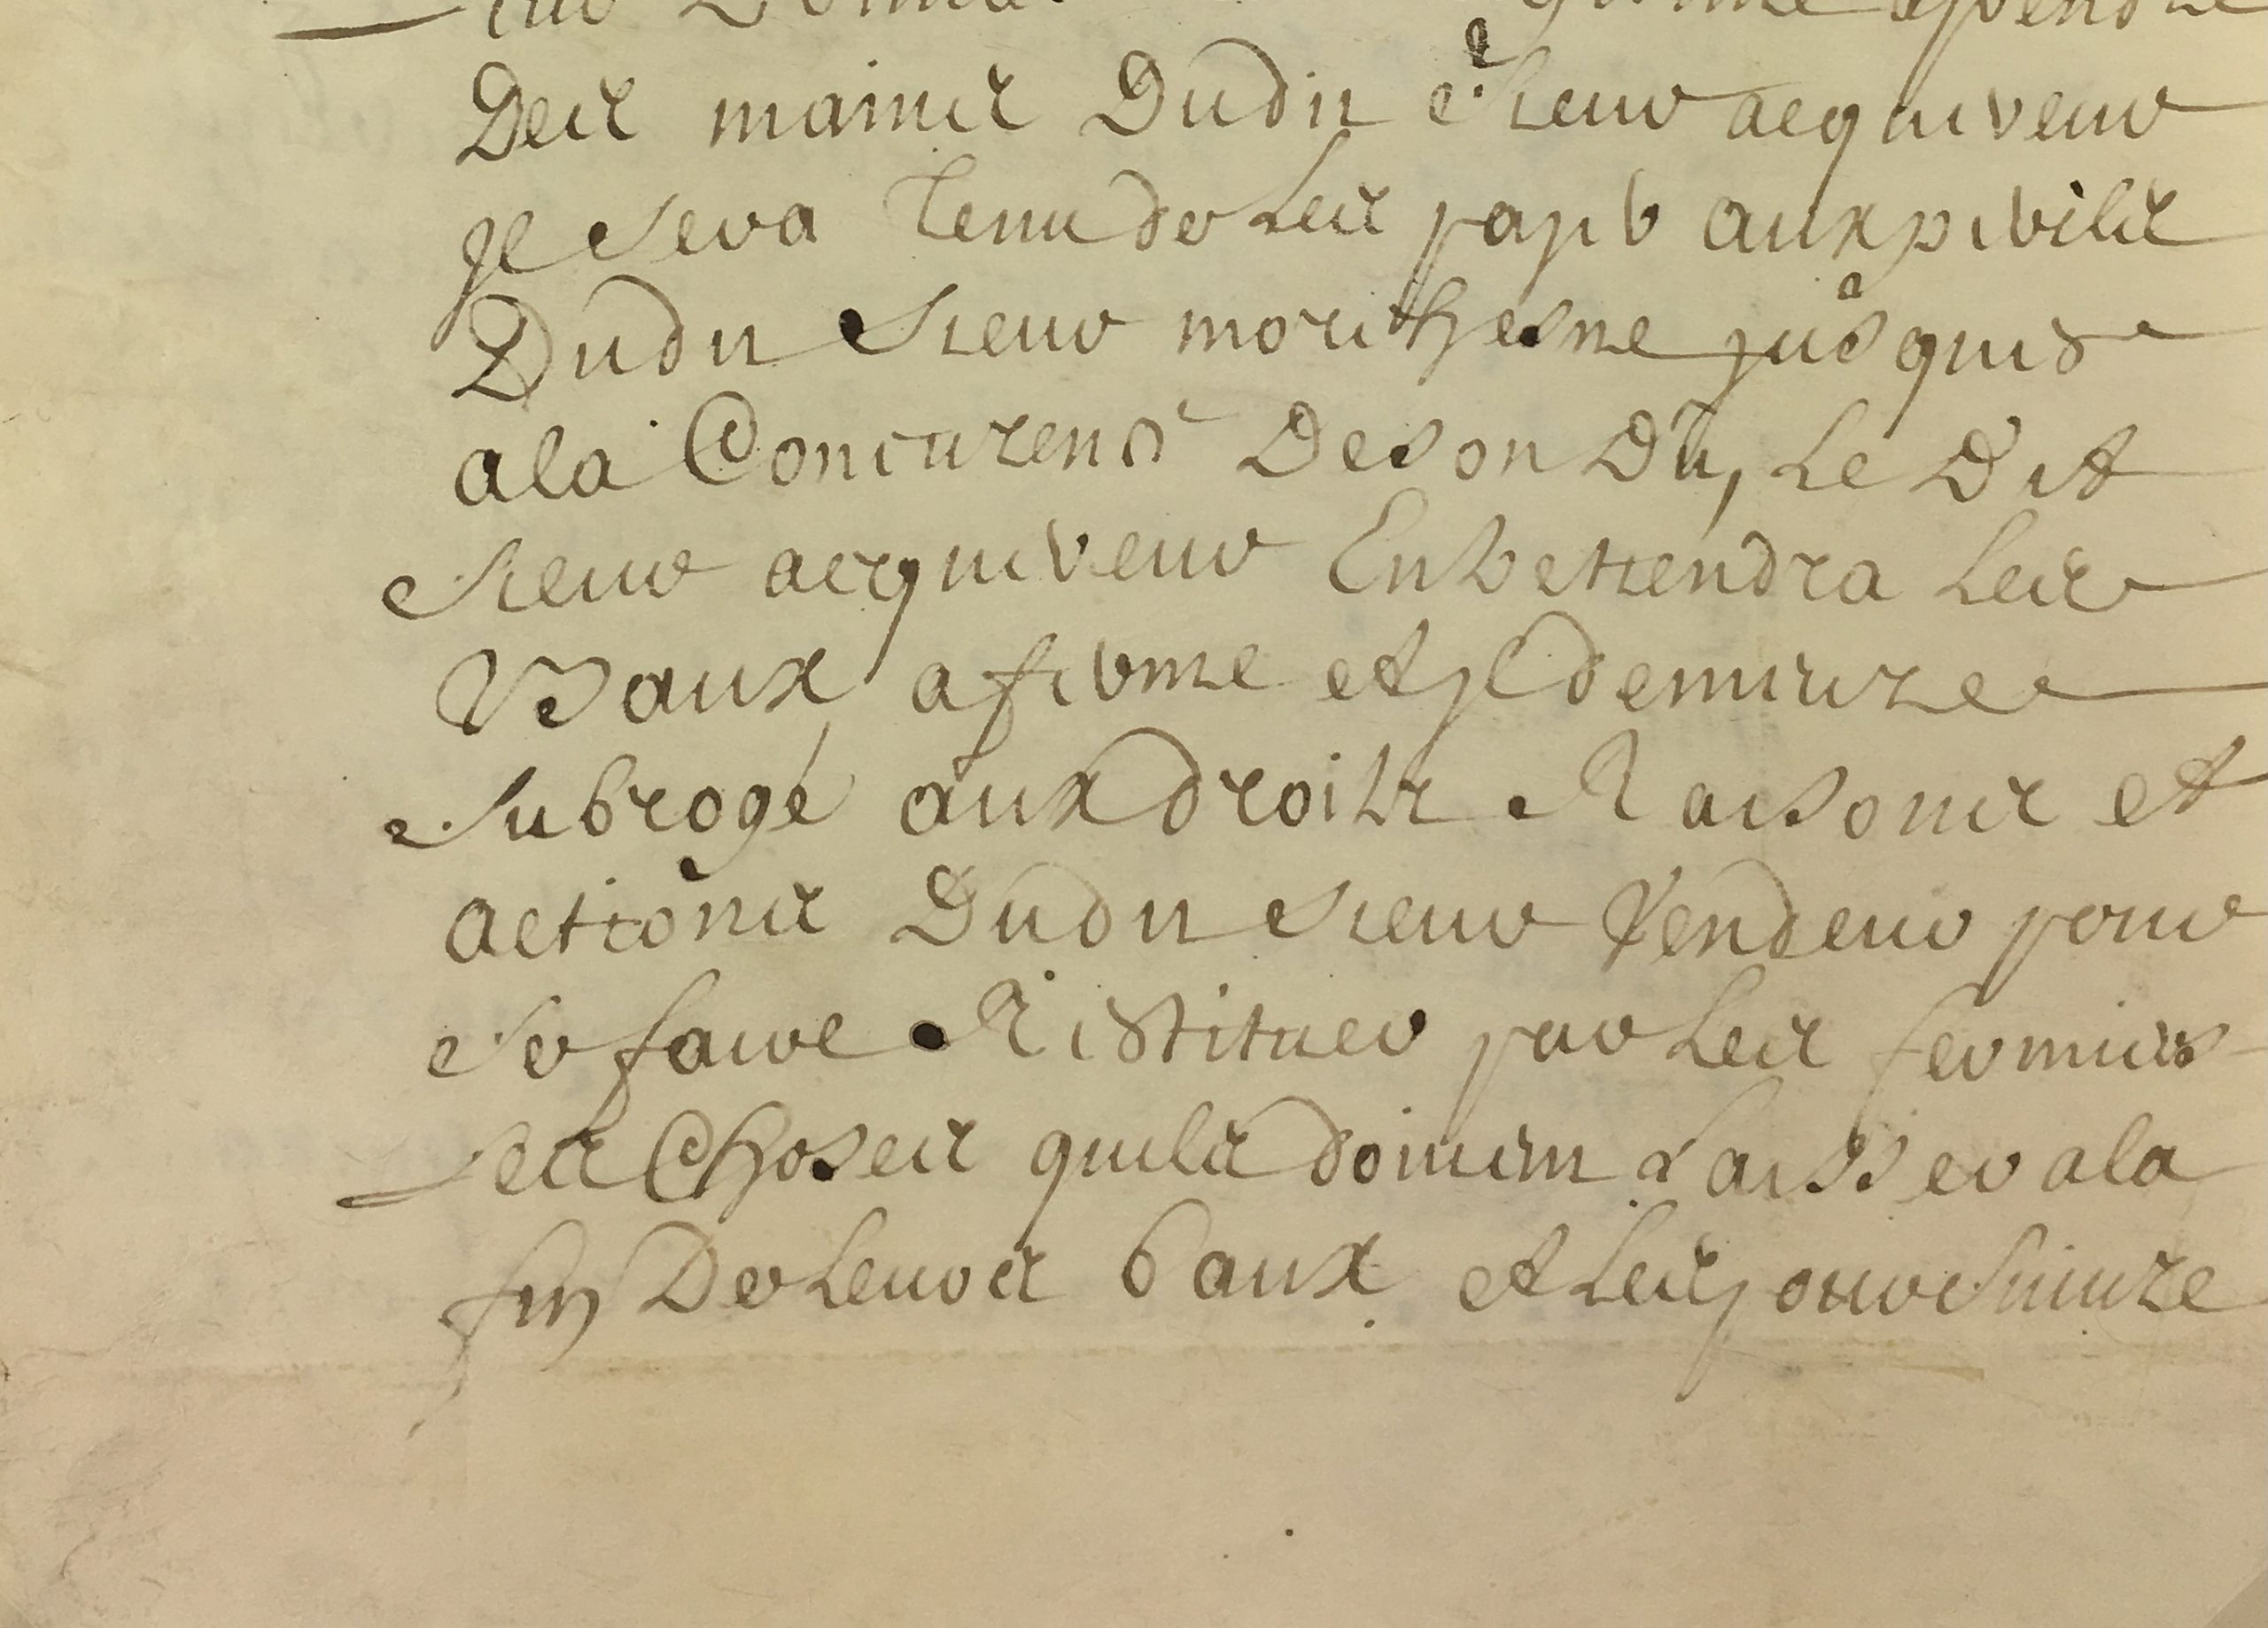 Des mains Dudit Sieur acquereur
Jl Sera Tenu de Les paÿer aux perils
Dudit Sieur morichesne jusques
a la Concurence De son Dû, Le Dit
Sieur acquereur Entretiendra Les
Baux a ferme et jl demeure
Subrogé aux droits Raisons et
actions Dudit Sieur Vendeur pour
Se faire Restituer par Les fermiers
Les Choses quils doivent Laisser a la
fin De Leurs baux et Les poursuivre